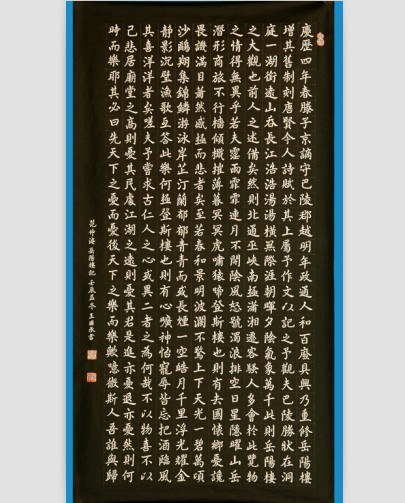 慶歷四年春滕子京謫守巴陵郡越明年政通人和百廢具興乃重修岳陽樓
增其舊制刻唐賢今人詩賦於其上屬予作文以記之予觀夫巴陵勝狀在洞
庭一湖銜遠山吞長江浩浩湯湯橫無際涯朝暉夕陰氣象萬千此則岳陽樓
之大觀也前人之述備矣然則北通巫峽南極瀟湘遷客騷人多會於此覽物
之情得無異乎若夫霪雨霏霏連月不開陰風怒號濁浪排空日星隱曜山岳
潛形商旅不行檣傾楫摧薄暮冥冥虎嘯猿啼登斯樓也則有去國懷鄉憂讒
畏譏滿目蕭然感極而悲者矣至若春和景明波瀾不驚上下天光一碧萬頃
沙鷗翔集錦鱗游泳岸芷汀蘭郁郁青青而或長煙一空皓月千里浮光耀金
靜影沉璧漁歌互答此樂何極登斯樓也則有心曠神怡寵辱皆忘把酒臨風
其喜洋洋者矣嗟夫予嘗求古仁人之心或異二者之為何哉不以物喜不以
己悲居廟堂之高則憂其民處江湖之遠則憂其君是進亦憂退亦憂然則何
時而樂耶其必曰先天下之憂而憂後天下之樂而樂歟噫微斯人吾誰與歸
范仲淹岳陽樓記壬辰孟冬王